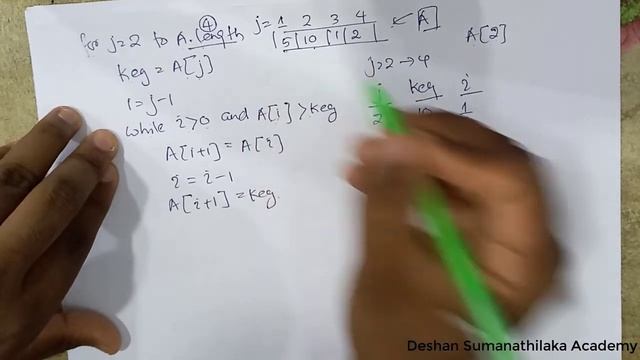 for j=2 to A.length j=1 2 3 4
④
5 10 1 2 ← A
A[2]
key = A[j]
j=2→4
i=j-1
key i
2 10 1
while i>0 and A[i]>key
A[i+1] = A[i]
i = i-1
A[i+1] = key
Deshan Sumanathilaka Academy